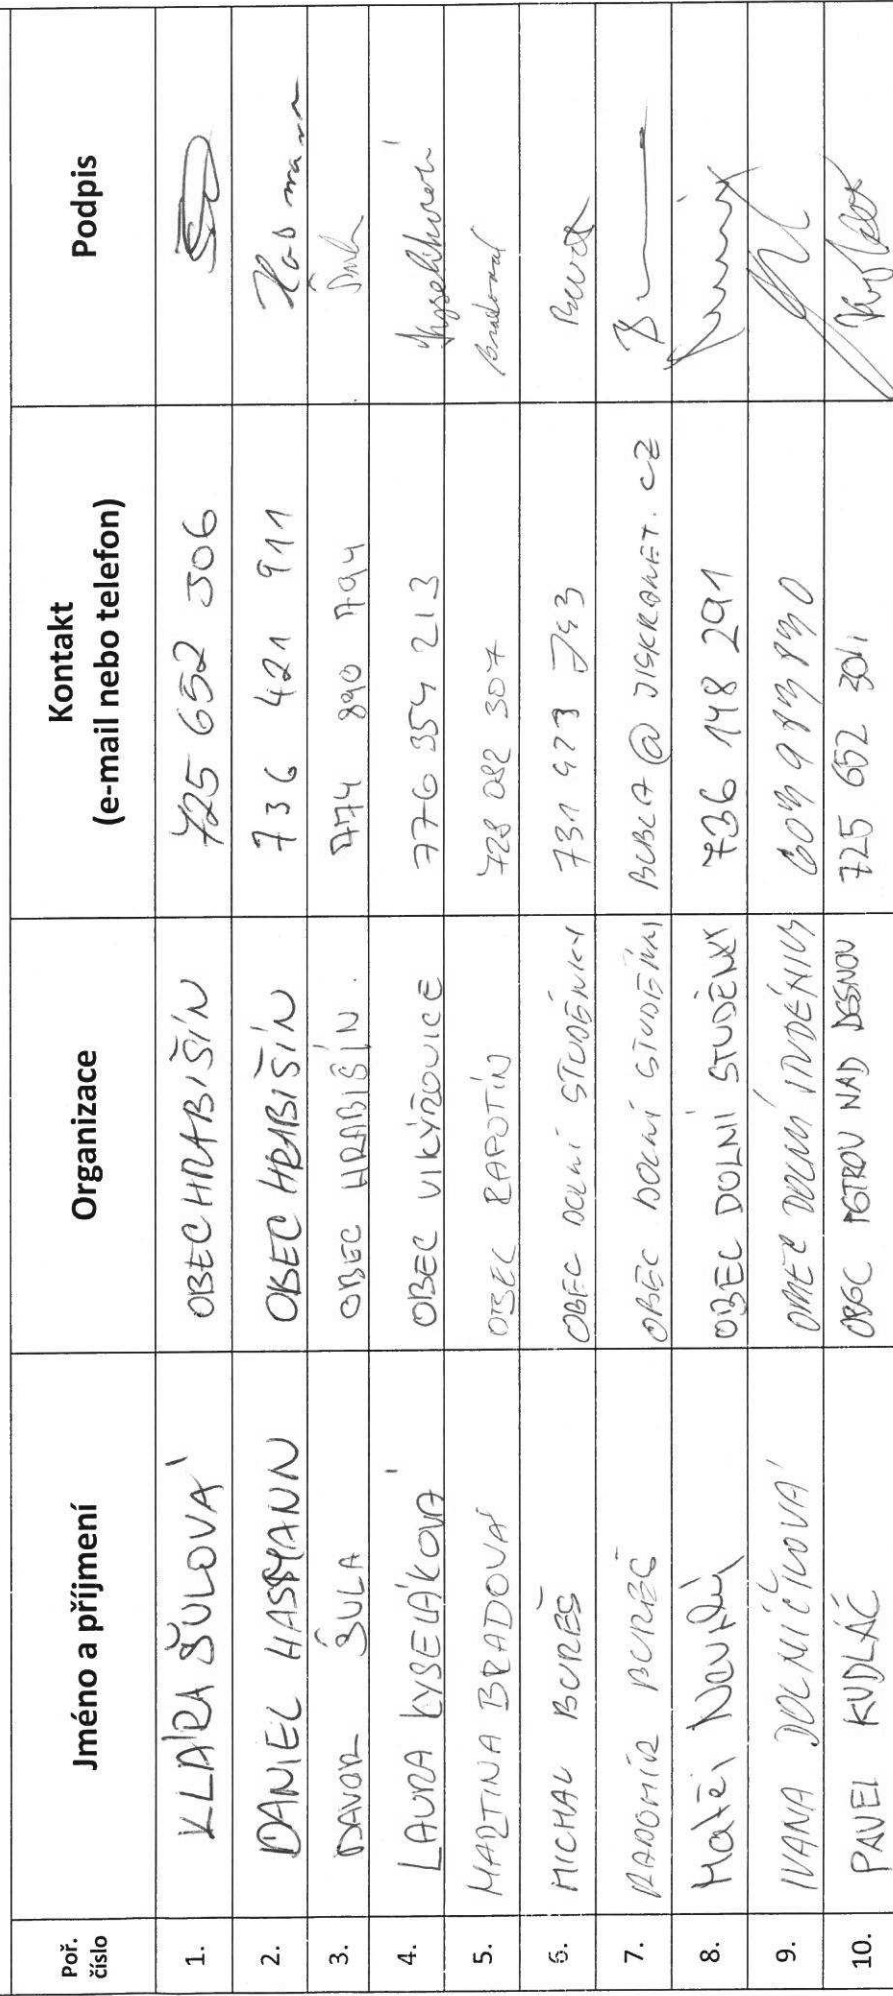 Poř. číslo Jméno a příjmení Organizace Kontakt (e-mail nebo telefon) Podpis
1. KLÁRA ŠULOVÁ OBEC HRABIŠÍN 725 652 306
2. DANIEL HASMANN OBEC HRABIŠÍN 736 421 911
3. DAVOR ŠULA OBEC HRABIŠÍN. 774 890 794
4. LAURA KYSELÁKOVÁ OBEC VIKÝŘOVICE 776 354 213
5. MARTINA BRADOVÁ OBEC RAPOTÍN 728 082 307
6. MICHAL BUREŠ OBEC DOLNÍ STUDÉNKY 731 973
7. RADOMÍR BUREŠ OBEC DOLNÍ STUDÉNKY @
8. Matěj OBEC DOLNÍ STUDÉNKY 736 148 291
9. IVANA DOLNÍČKOVÁ OBEC DOLNÍ STUDÉNKY
10. PAVEL KUDLÁČ OBEC PETROV NAD DESNOU 725 652 304